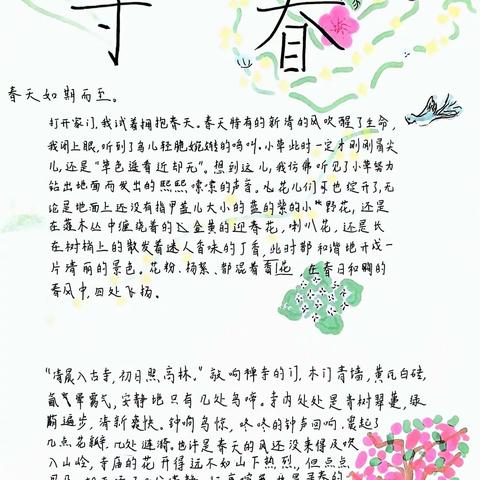 寻 春
春天如期而至。
打开家门，我试着拥抱春天。春天特有的新清的风吹醒了生命，
我闭上眼，听到了鸟儿轻脆婉转的鸣叫。小草此时一定才刚刚冒尖
儿，还是“草色遥看近却无”。想到这儿，我仿佛听见了小草努力
钻出地面而发出的熙熙嗦嗦的声音。花儿们也绽开了，无
论是地面上还没有指甲盖儿大小的蓝的紫的小野花，还是
在落木丛中缠绕着的金黄的迎春花，喇叭花，还是长
在树梢上的散发着迷人香味的丁香，此时都和谐地开成一
片清丽的景色。花粉、杨絮、都混着香，在春日和煦的
春风中，四处飞扬。
“清晨入古寺，初日照高林。”敲响禅寺的门，木门青墙，黄瓦白砖，
氤氲雾气，安静地只有几处鸟啼。寺内处处是青树翠蔓，绿
荫遍步，清新爽快。钟响鸟惊，咚咚的钟声回响，震起了
几点花瓣，几处涟漪。也许是春天的风还没来得及吹
入山岭，寺庙的花开得远不如山下热烈，但点点